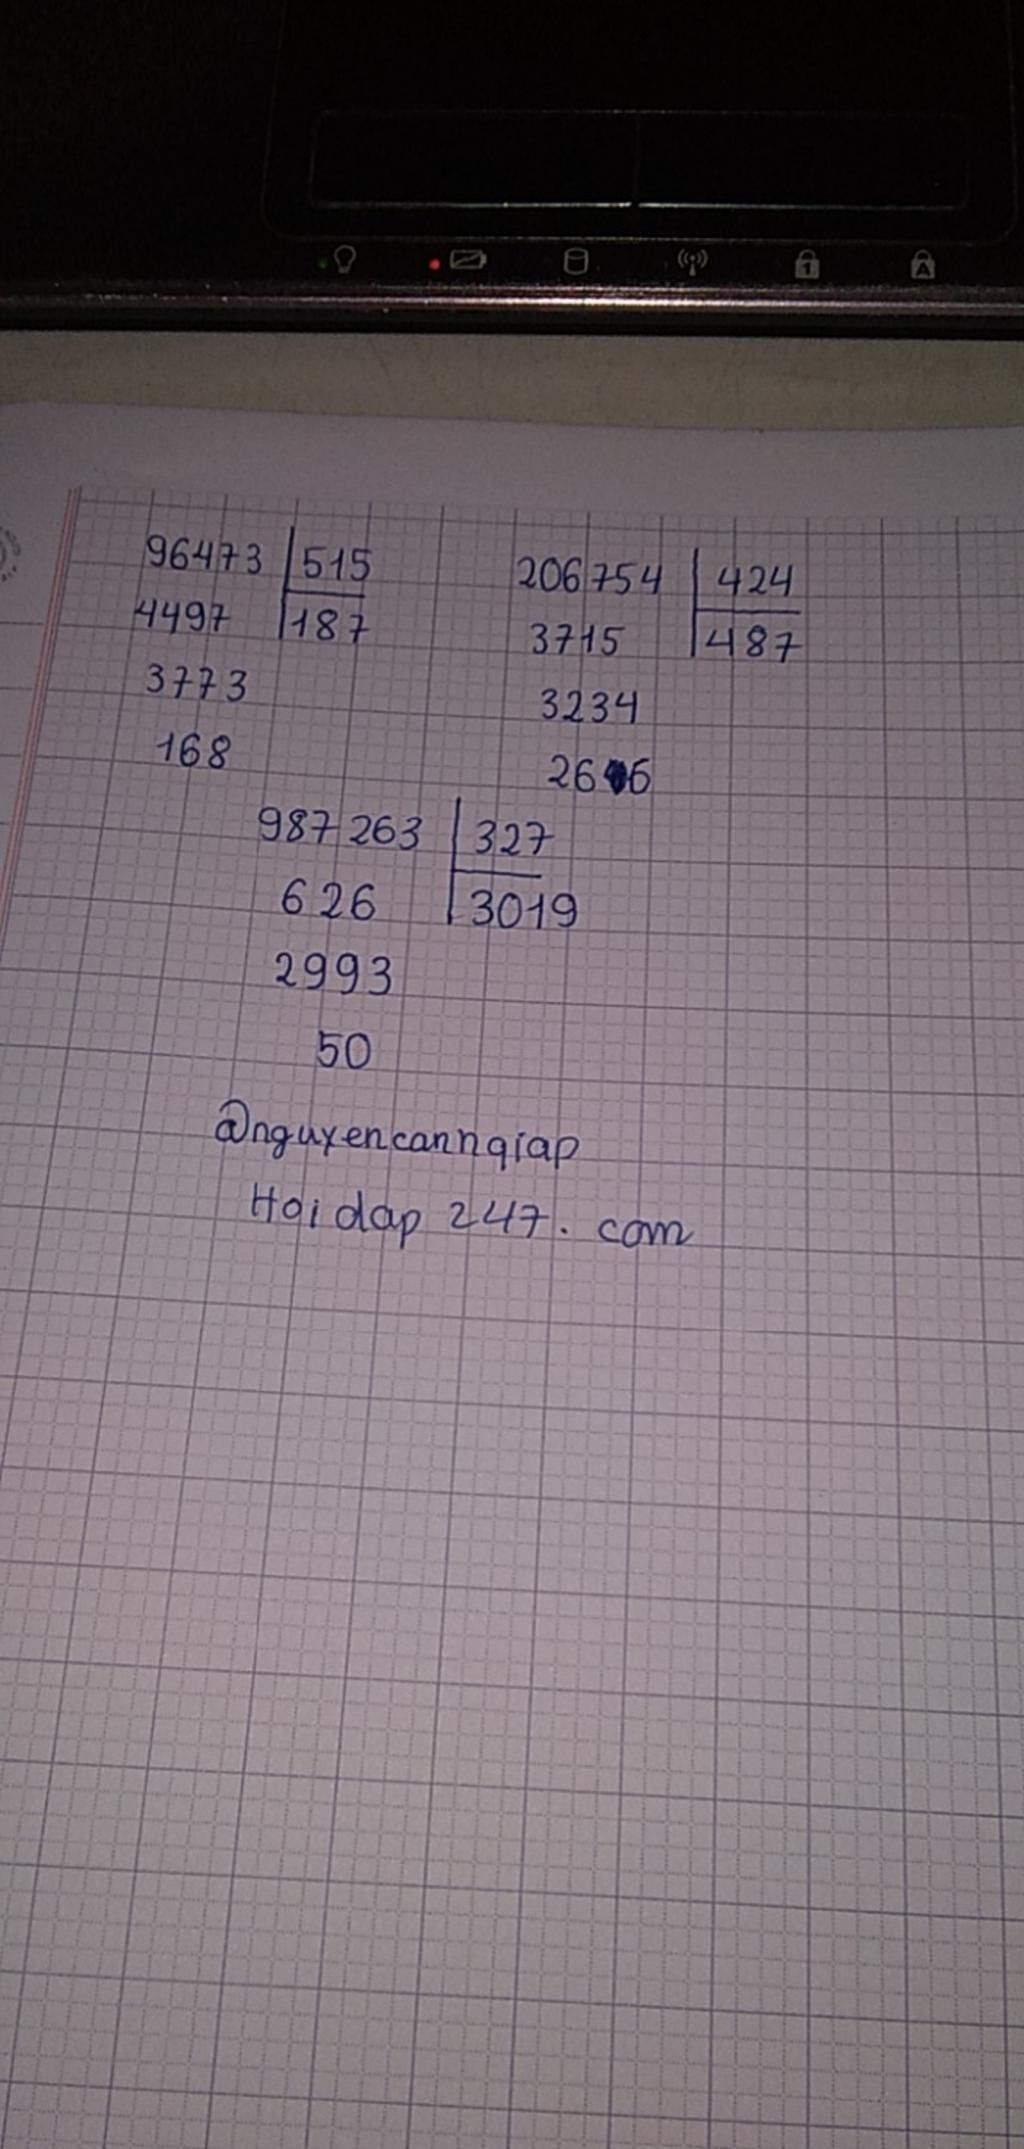 96473 | 515
4497 | 187
3773
168
206754 | 424
3715 | 487
3234
266
987263 | 327
626 | 3019
2993
50
@nguyencanngiap
Hoidap 247. com